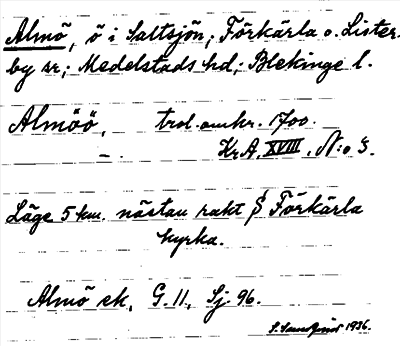 Almö, ö i Saltsjön, Förkärla o. Lister-
by sr, Medelstads hd, Blekinge l.
Almöö, trol. omkr. 1700.
— . Kr. A. XVIII. N:o 3.
Läge 5 km. nästan rakt S Förkärla
kyrka.
Almö ek. G. 11, Sj. 96.
1936.